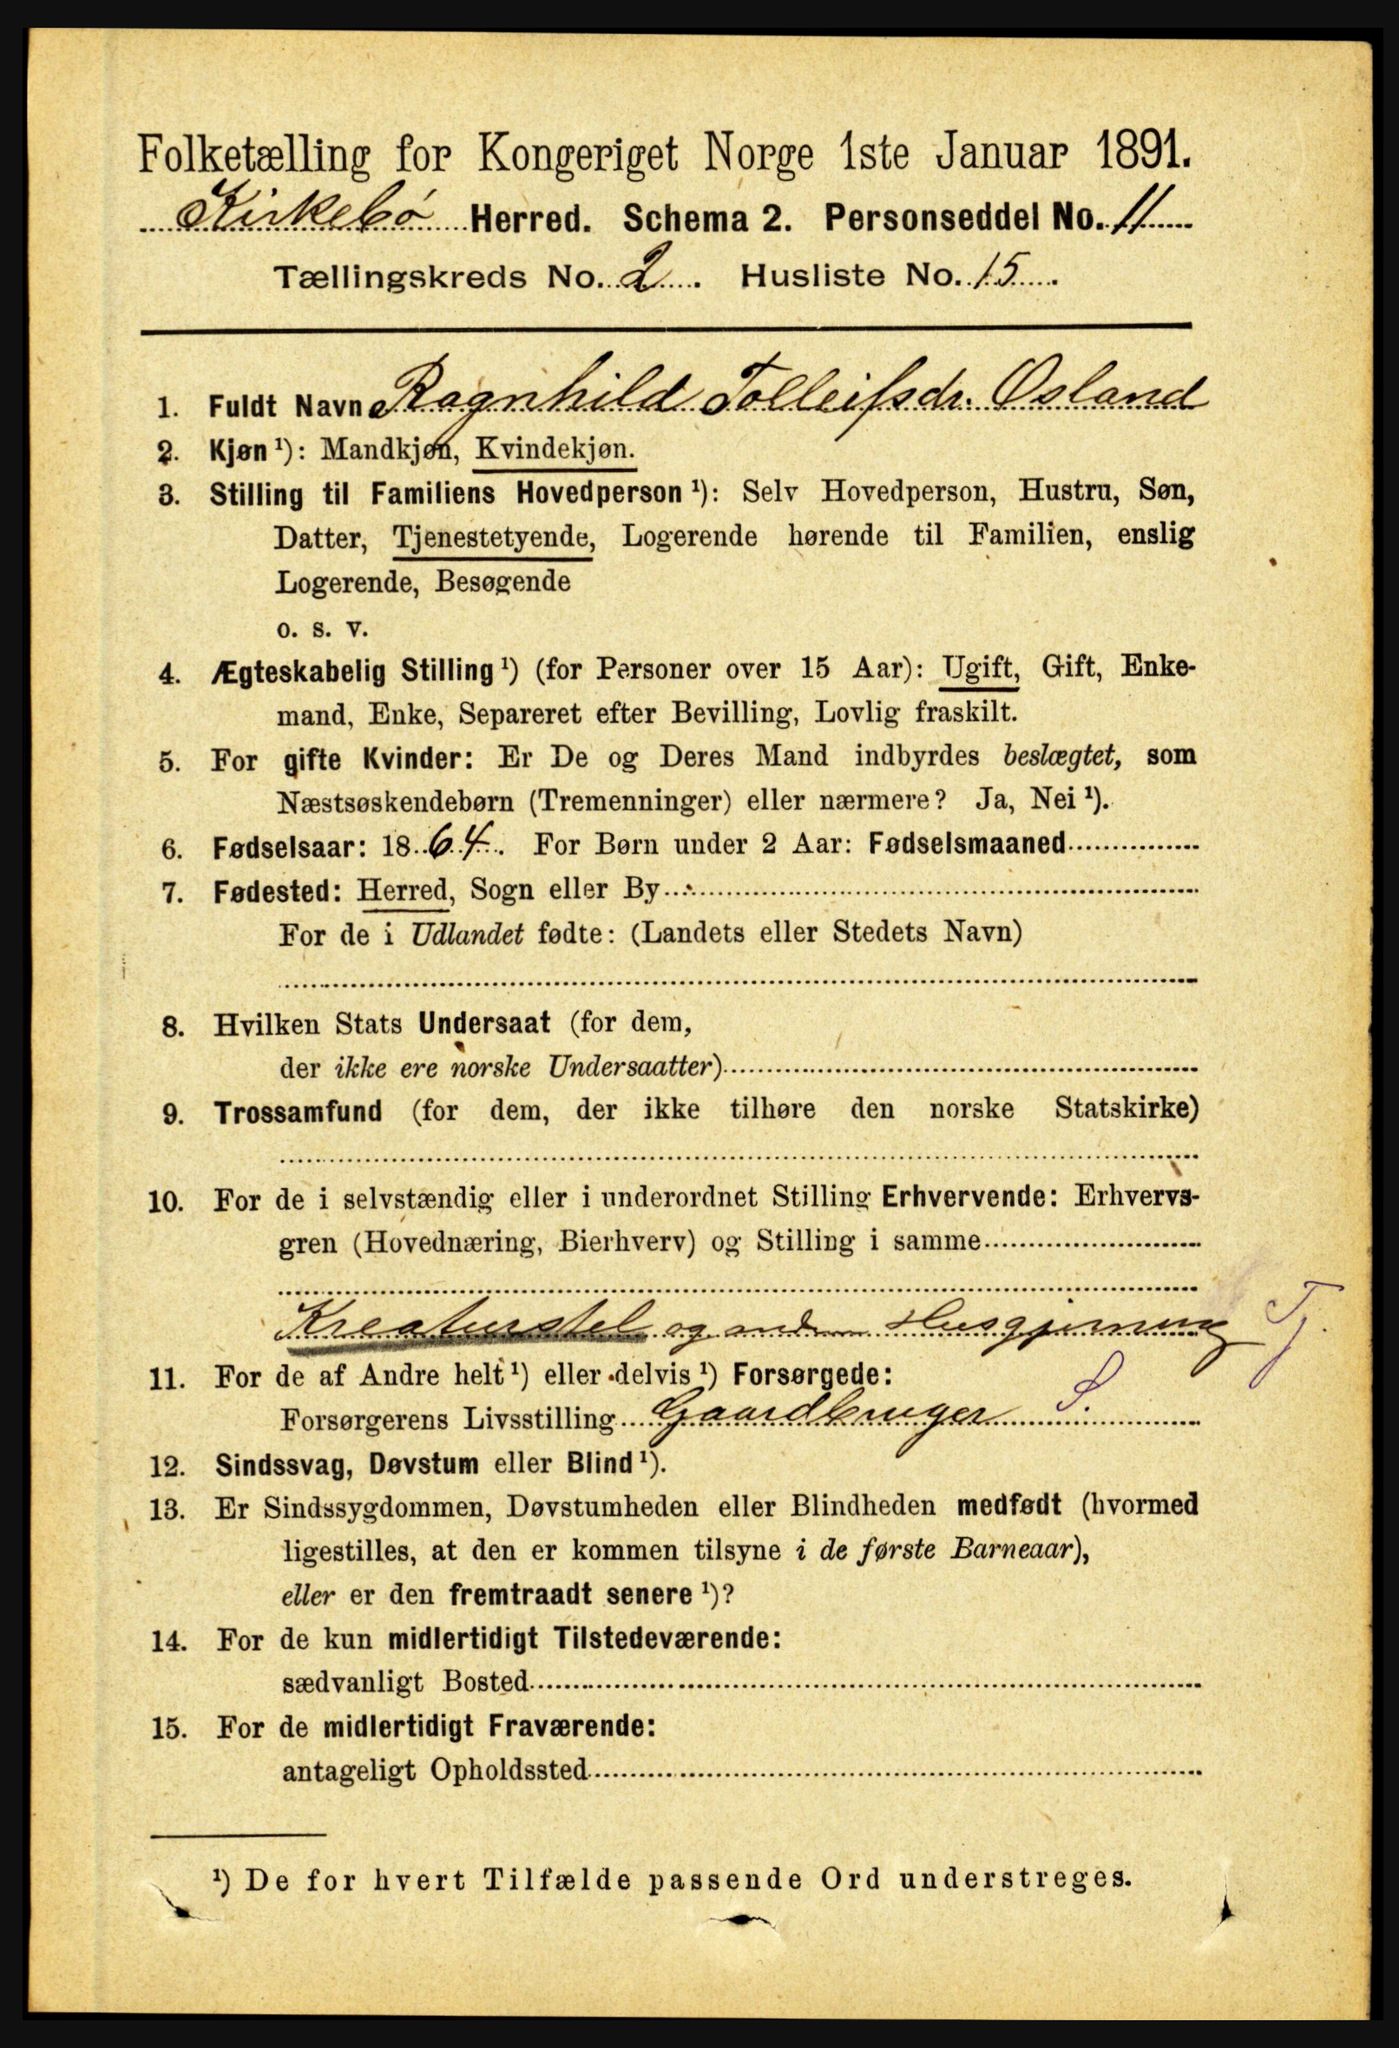 Folketælling for Kongeriget Norge 1ste Januar 1891.
Kirkebø Herred. Schema 2. Personseddel No. 11
Tællingskreds No. 2. Husliste No. 15.
1. Fuldt Navn Ragnhild Tolleifsdr. Osland
2. Kjøn ¹): Mandkjøn, Kvindekjøn.
3. Stilling til Familiens Hovedperson ¹): Selv Hovedperson, Hustru, Søn,
Datter, Tjenestetyende, Logerende hørende til Familien, enslig
Logerende, Besøgende
o. s. v.
4. Ægteskabelig Stilling ¹) (for Personer over 15 Aar): Ugift, Gift, Enke-
mand, Enke, Separeret efter Bevilling, Lovlig fraskilt.
5. For gifte Kvinder: Er De og Deres Mand indbyrdes beslægtet, som
Næstsøskendebørn (Tremenninger) eller nærmere? Ja, Nei ¹).
6. Fødselsaar: 1864. For Børn under 2 Aar: Fødselsmaaned
7. Fødested: Herred, Sogn eller By
For de i Udlandet fødte: (Landets eller Stedets Navn)
8. Hvilken Stats Undersaat (for dem,
der ikke ere norske Undersaatter)
9. Trossamfund (for dem, der ikke tilhøre den norske Statskirke)
10. For de i selvstændig eller i underordnet Stilling Erhvervende: Erhvervs-
gren (Hovednæring, Bierhverv) og Stilling i samme
Kreaturstel og anden Husgjerning Tj.
11. For de af Andre helt ¹) eller delvis ¹) Forsørgede:
Forsørgerens Livsstilling Gaardbruger S.
12. Sindssvag, Døvstum eller Blind ¹).
13. Er Sindssygdommen, Døvstumheden eller Blindheden medfødt (hvormed
ligestilles, at den er kommen tilsyne i de første Barneaar),
eller er den fremtraadt senere ¹)?
14. For de kun midlertidigt Tilstedeværende:
sædvanligt Bosted
15. For de midlertidigt Fraværende:
antageligt Opholdssted
¹) De for hvert Tilfælde passende Ord understreges.